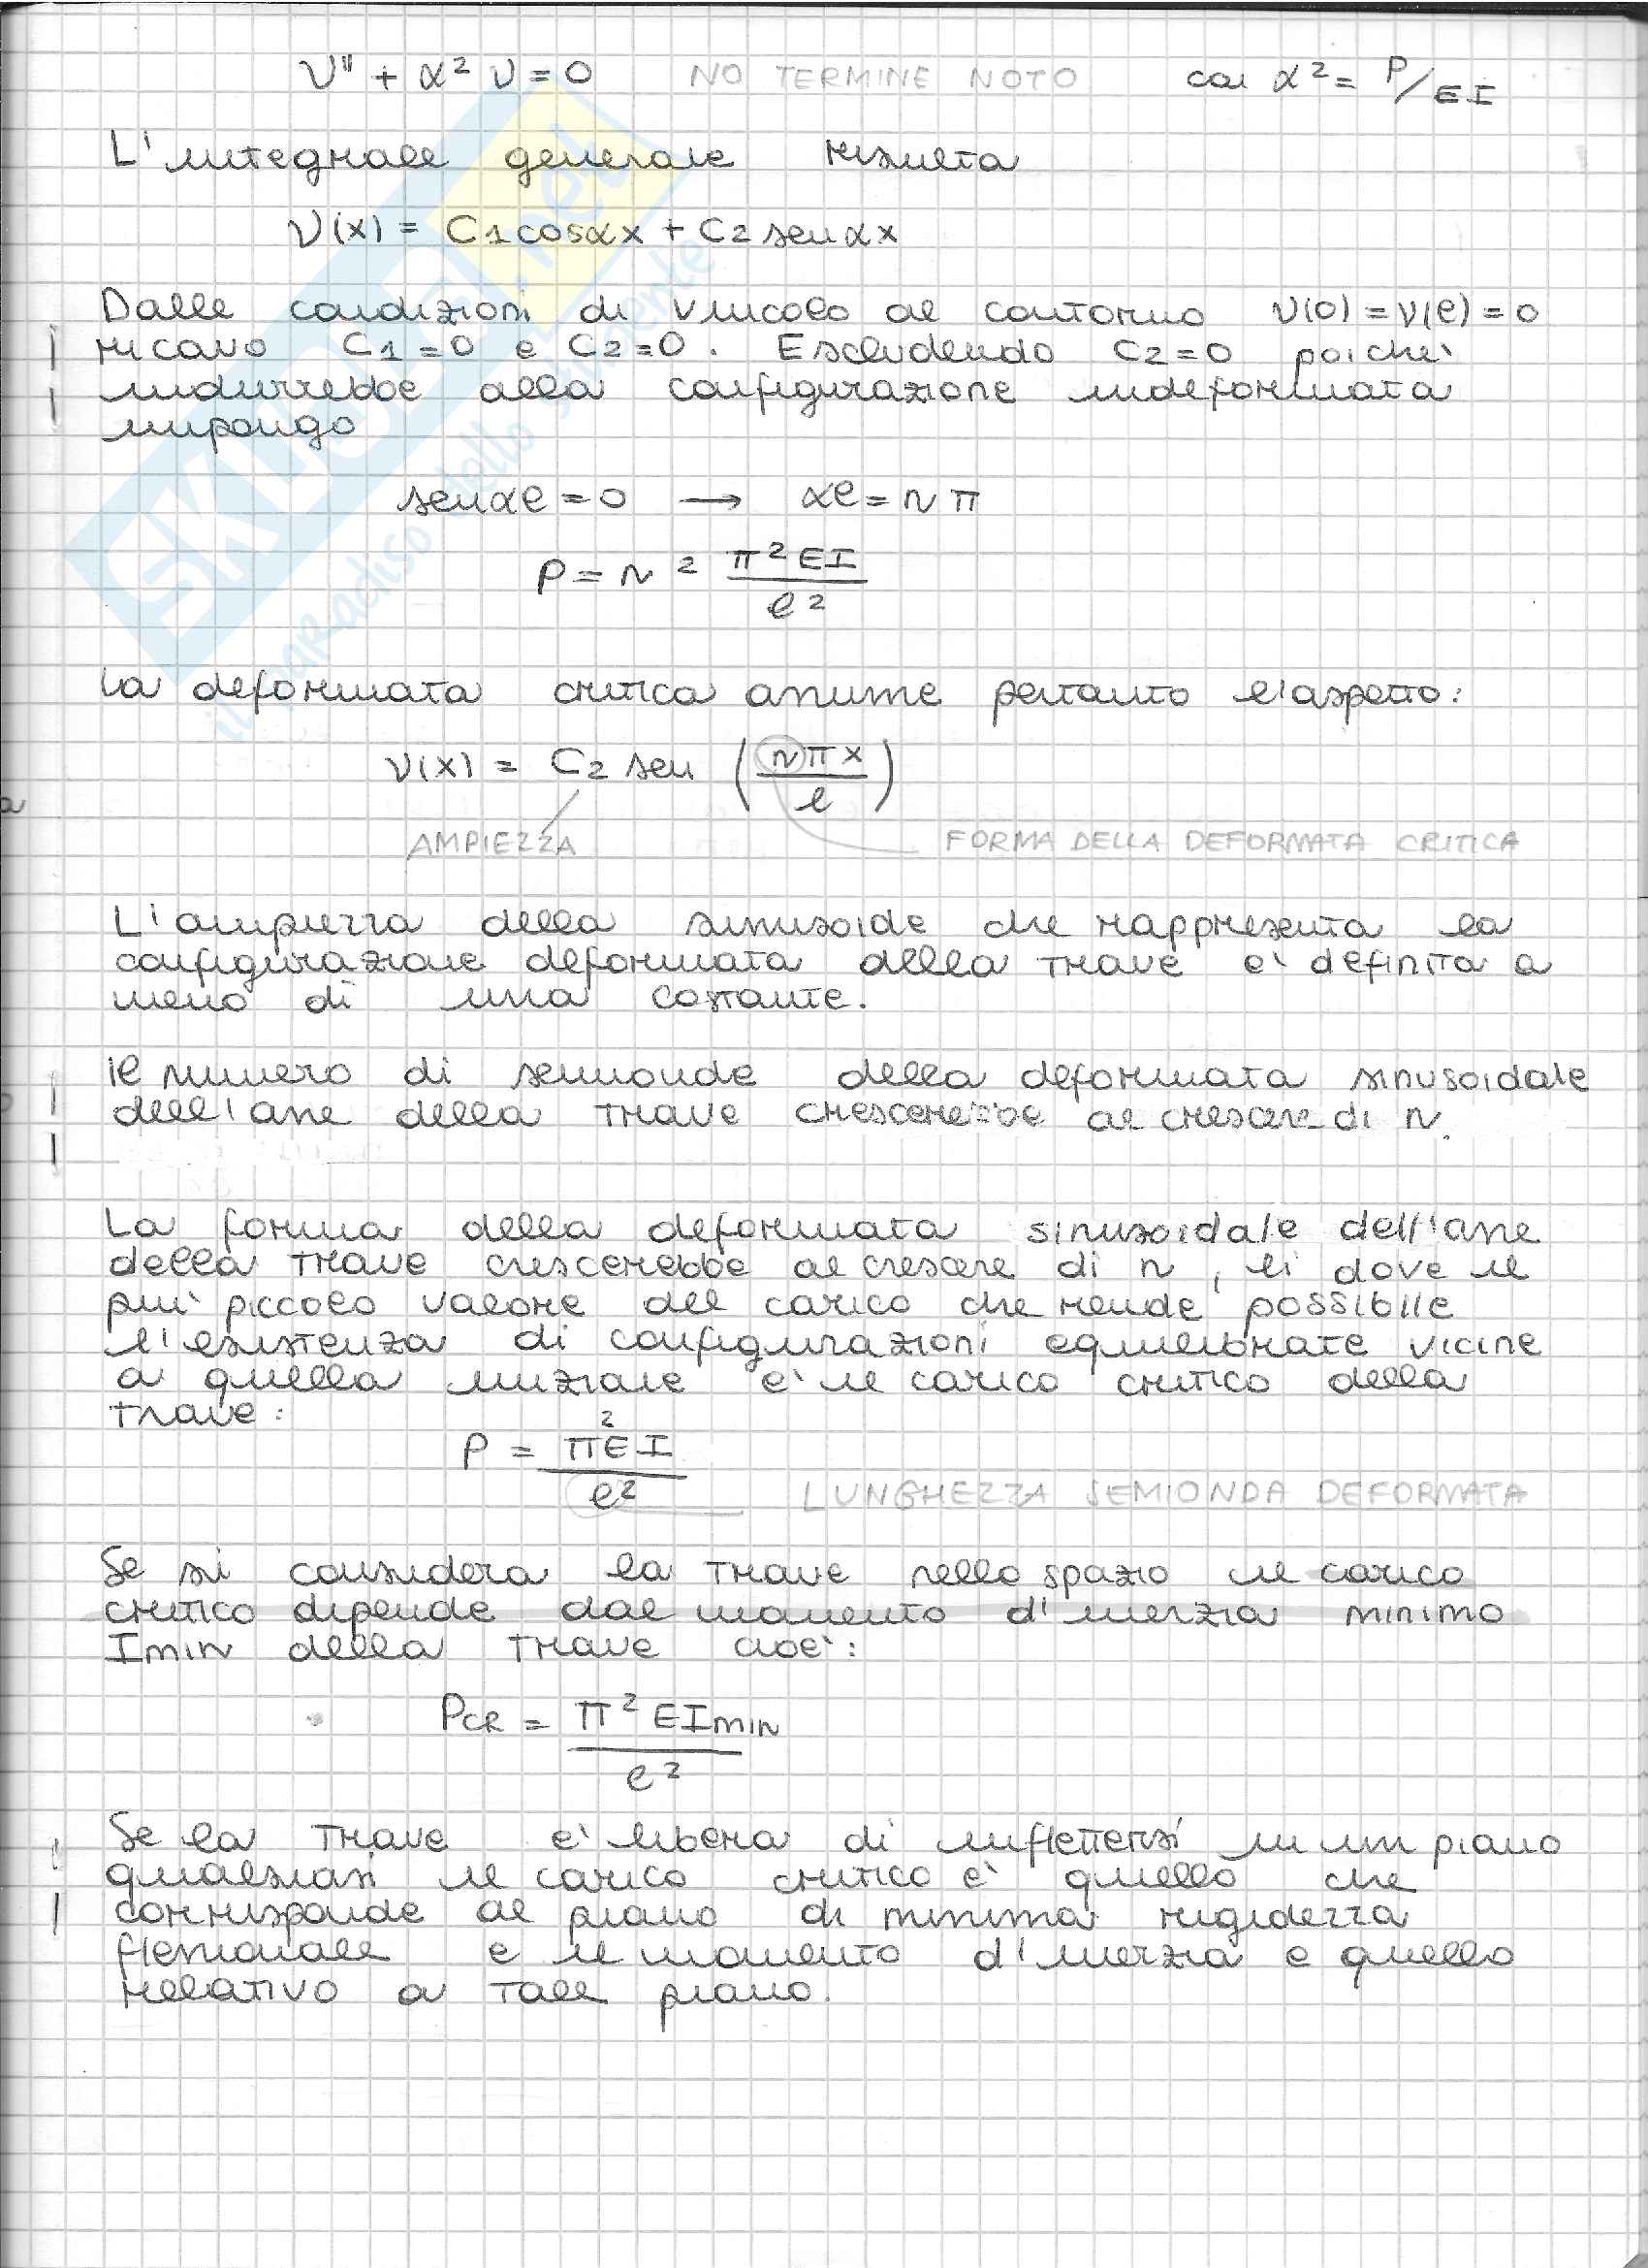 v'' + α² v = 0 NO TERMINE NOTO con α² = P/EI
L'integrale generale risulta
v(x) = C1 cosαx + C2 senαx
Dalle condizioni di vincolo al contorno v(0) = v(l) = 0
ricavo C1 = 0 e C2 = 0. Escludendo C2 = 0 poiché
indurrebbe alla configurazione indeformata
impongo
senαl = 0 → αl = nπ
P = n² π² EI / l²
La deformata critica assume pertanto l'aspetto:
v(x) = C2 sen (nπx / l)
AMPIEZZA FORMA DELLA DEFORMATA CRITICA
L'ampiezza della sinusoide che rappresenta la
configurazione deformata della trave è definita a
meno di una costante.
Il numero di semionde della deformata sinusoidale
dell'asse della trave crescerebbe al crescere di n.
La forma della deformata sinusoidale dell'asse
della trave crescerebbe al crescere di n, lì dove il
più piccolo valore del carico che rende possibile
l'esistenza di configurazioni equilibrate vicine
a quella iniziale è il carico critico della
trave:
P = π² E I / l²
LUNGHEZZA SEMIONDA DEFORMATA
Se si considera la trave nello spazio il carico
critico dipende dal momento d'inerzia minimo
Imin della trave cioè:
PCR = π² EImin / l²
Se la trave è libera di inflettersi in un piano
qualsiasi il carico critico è quello che
corrisponde al piano di minima rigidezza
flessionale e il momento d'inerzia e quello
relativo a tale piano.
SKUOLA.net
il paradiso dello studente